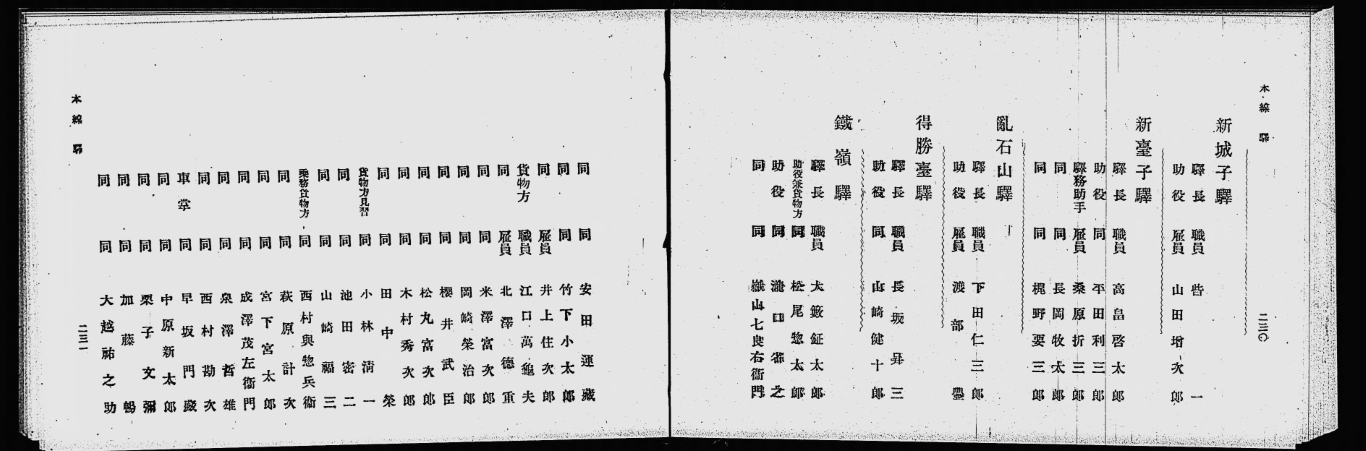 本線驛
二三〇
新城子驛
驛長 職員 一
助役 雇員 山田增次郎
新臺子驛
驛長 職員 高畠啓太郎
助役 同 平田利三郎
驛務助手 雇員 桑原折三郎
同 同 長岡牧太郎
同 同 梶野要三郎
亂石山驛
驛長 職員 下田仁三郎
助役 雇員 渡部
得勝臺驛
驛長 職員 長坂昇三
助役 同 山崎健十郎
鐵嶺驛
驛長 職員 大鈑鉦太郎
助役兼貨物方 同 松尾惣太郎
助役 同 瀧口 之
同 同 嶽山七良右衞門
同 同 安田運藏
同 同 竹下小太郎
同 雇員 井上佳次郎
貨物方 職員 江口萬龜夫
同 雇員 北澤德重
同 同 米澤富次郎
同 同 岡崎榮治郎
同 同 櫻井武臣
同 同 松丸富次郎
同 同 木村秀次郎
同 同 田中榮
貨物方見習 同 小林淸一
同 同 池田密二
同 同 山崎福三
乘務貨物方 同 西村與惣兵衞
同 同 萩原計次
同 同 宮下宮太郎
同 同 成澤茂左衞門
同 同 泉澤哲雄
同 同 西村勘次
車掌 同 早坂門藏
同 同 中原新太郎
同 同 栗子文彌
同 同 加藤暢
同 同 大越祐之助
本線驛
二三一